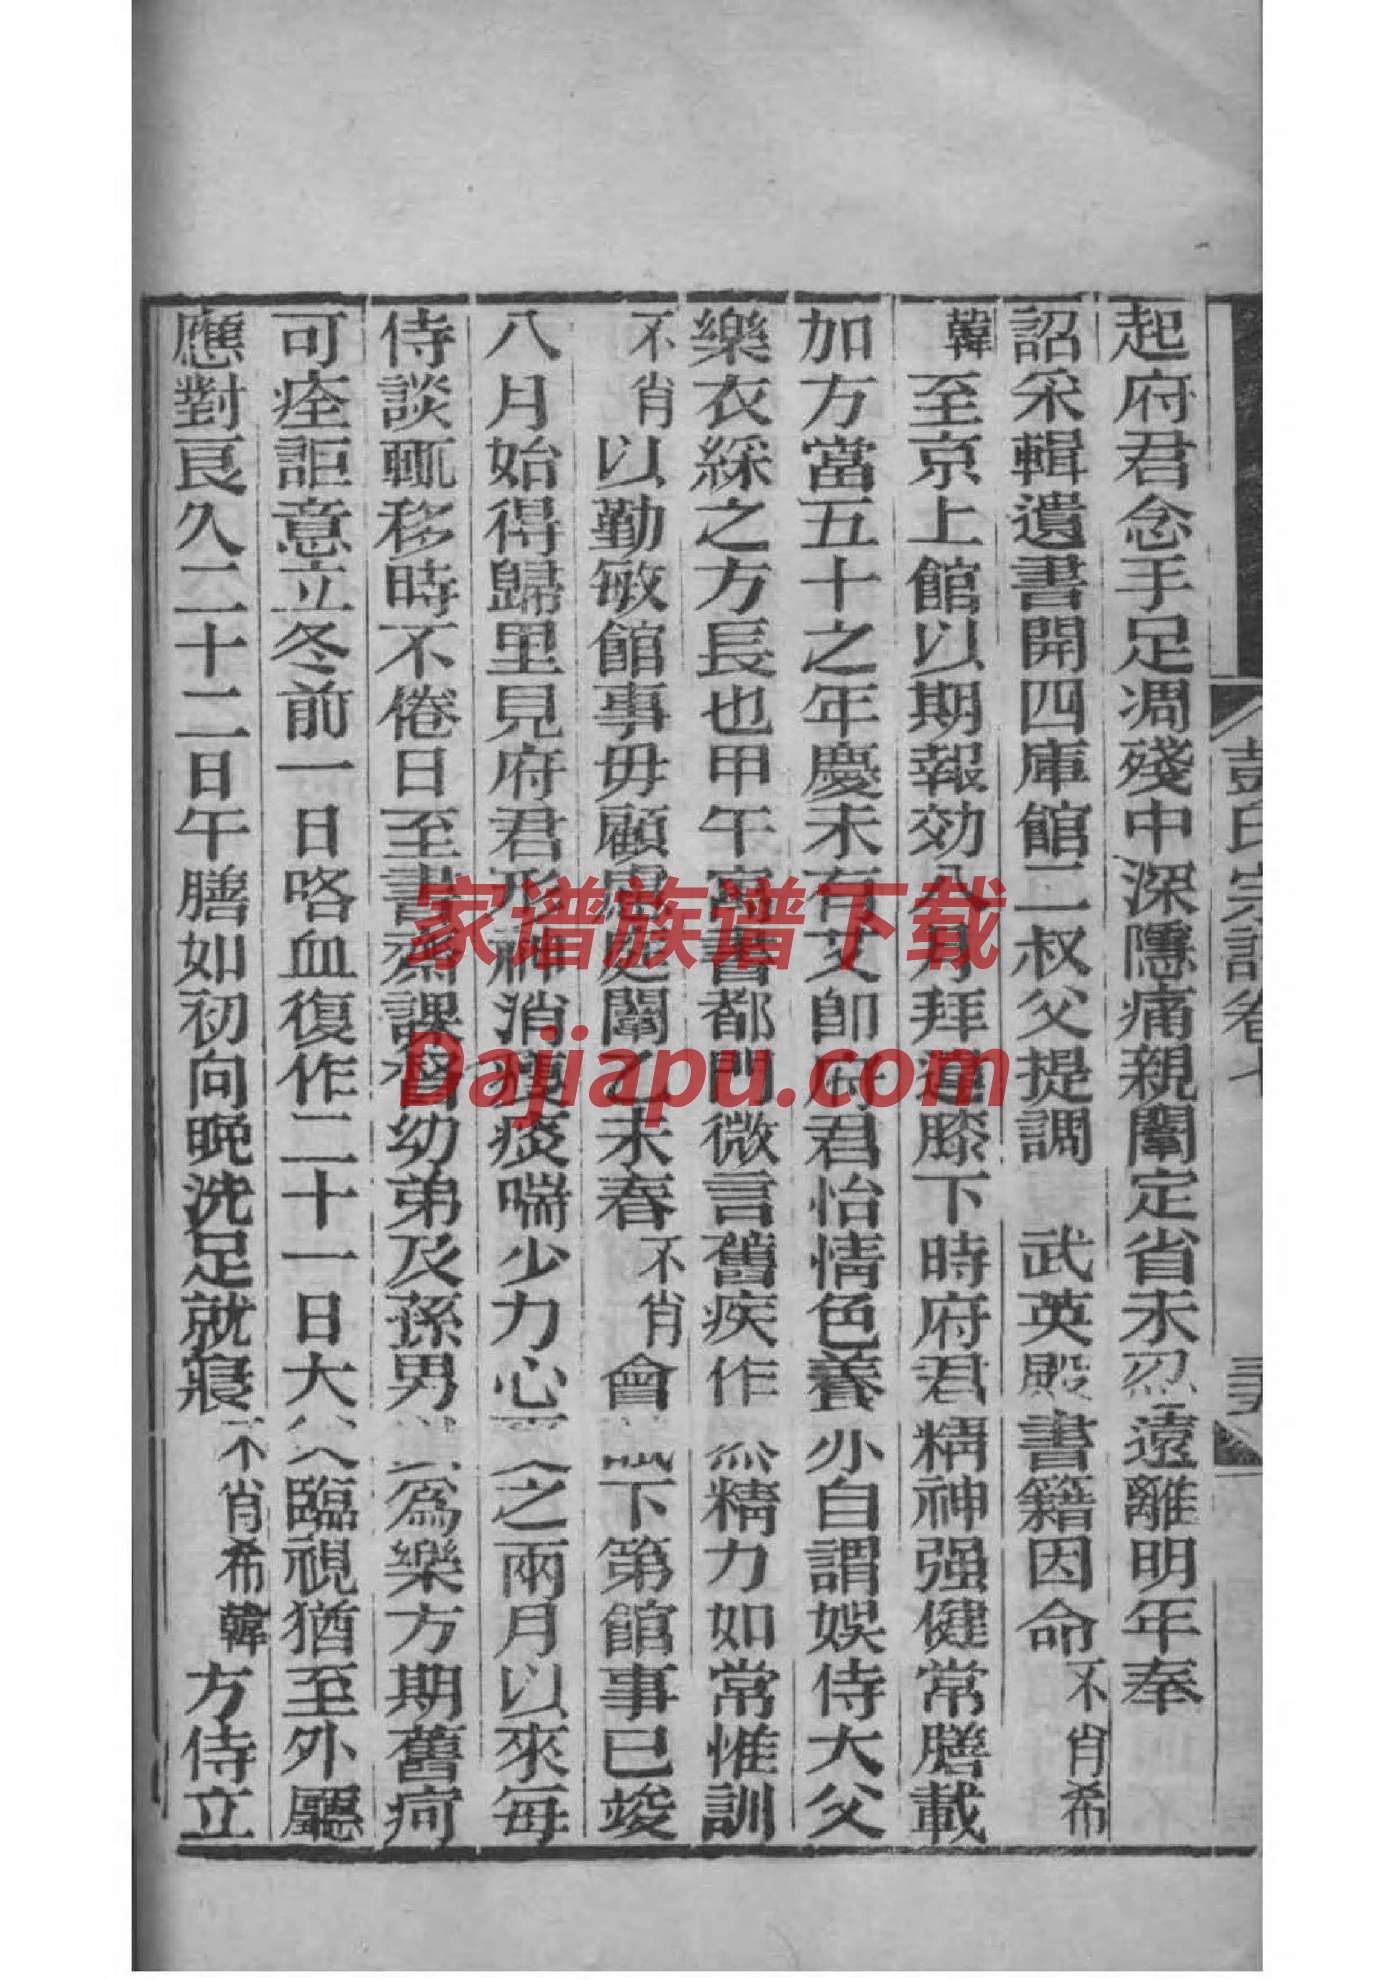 起府君念手足凋殘中深隱痛親闈定省未忍遠離明年奉
詔采輯遺書開四庫館二叔父提調武英殿書籍因命不肖希
韓至京上館以期報効八月拜違膝下時府君精神强健常膳載
加方當五十之年慶未有艾卽府君怡情色養亦自謂娛侍大父
樂衣綵之方長也甲午寄書都門微言舊疾作然精力如常惟訓
不肖以勤敏館事毋顧庭闈乙未春不肖會試下第館事已竣
八月始得歸里見府君形神消痰喘少力心之兩月以來每
侍談輒移時不倦日至書齋課督幼弟及孫男為樂方期舊疴
可痊詎意立冬前一日咯血復作二十一日大父臨視猶至外廳
應對良久二十二日午膳如初向晚洗足就寢不肖希韓方侍立
彭氏宗譜卷七
家谱族谱下载
Dajiapu.com